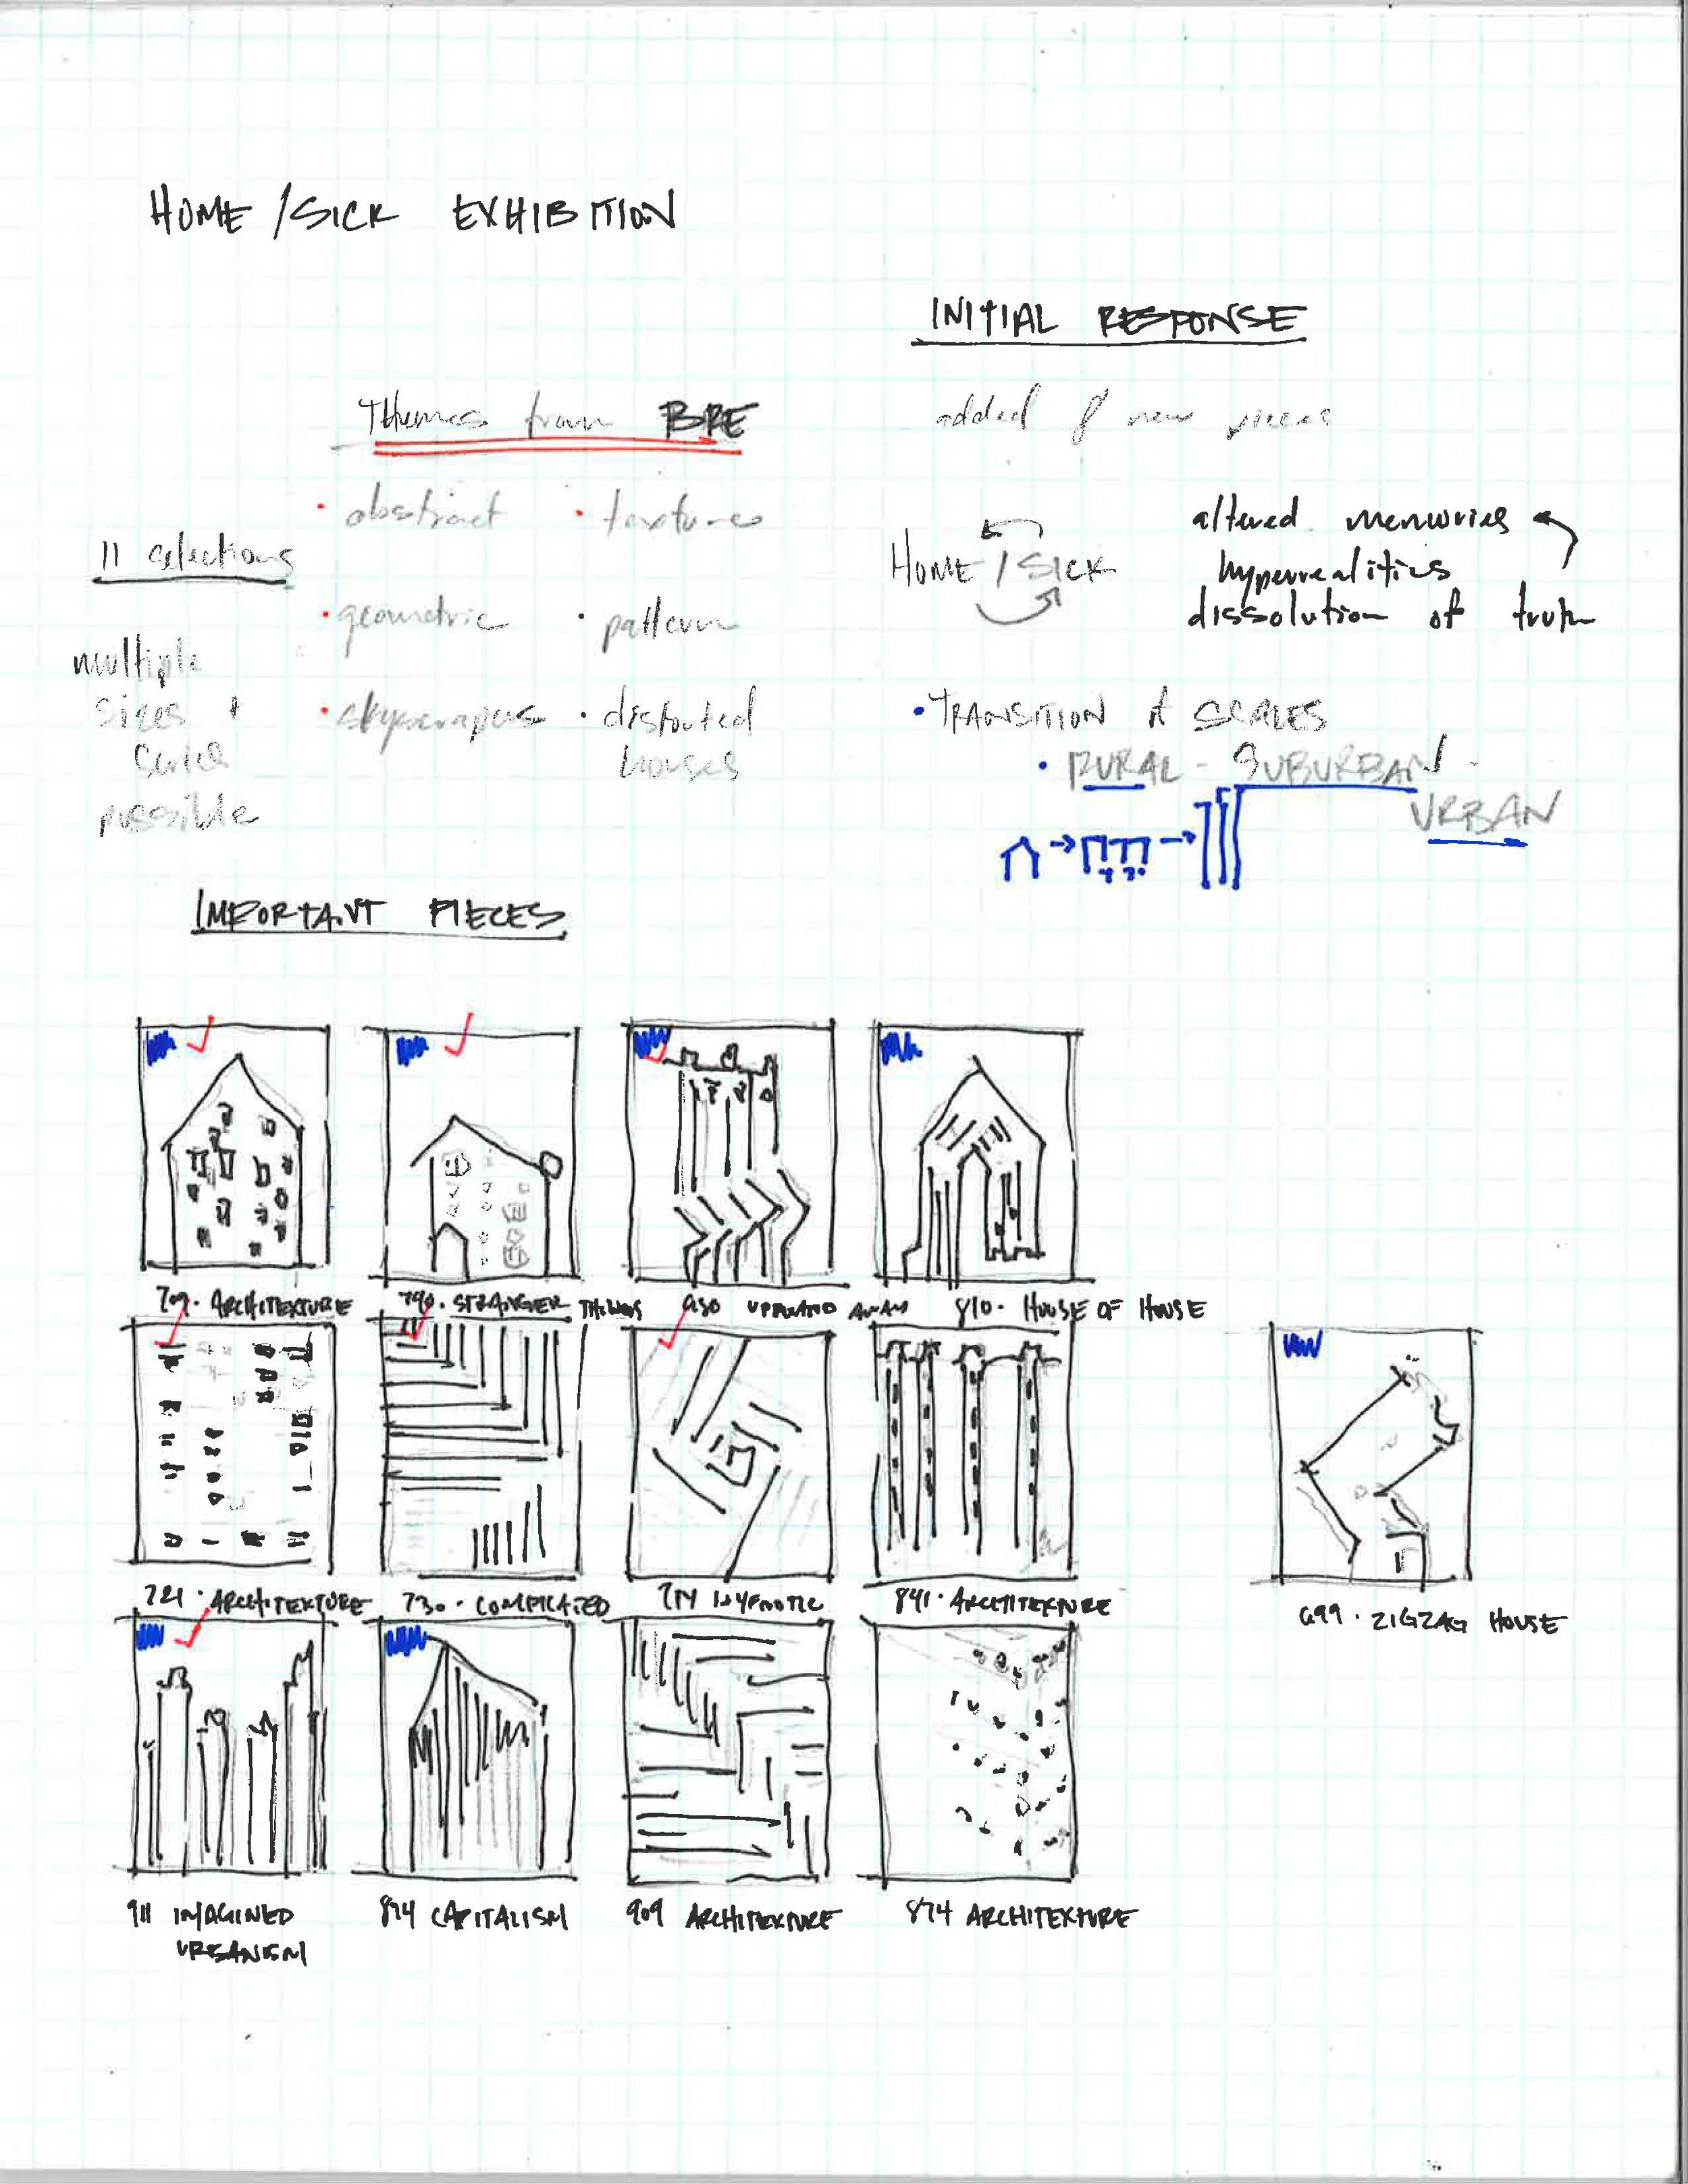 HOME / SICK EXHIBITION
INITIAL RESPONSE
Themes from BRE
added 8 new pieces
11 selections
multiple
sizes +
series
possible
• abstract • textures
• geometric • pattern
• skyscrapers • distorted
houses
HOME / SICK
altered memories
hyperrealities
dissolution of truth
• TRANSITION of SCALES
• RURAL - SUBURBAN -
URBAN
IMPORTANT PIECES
709. ARCHITEXTURE
790. STRANGER THINGS
810. HOUSE OF HOUSE
721. ARCHITEXTURE
730. COMPLICATED
HYPNOTIC
841. ARCHITEXTURE
699. ZIGZAG HOUSE
911 IMAGINED
URBANISM
CAPITALISM
909 ARCHITEXTURE
874 ARCHITEXTURE